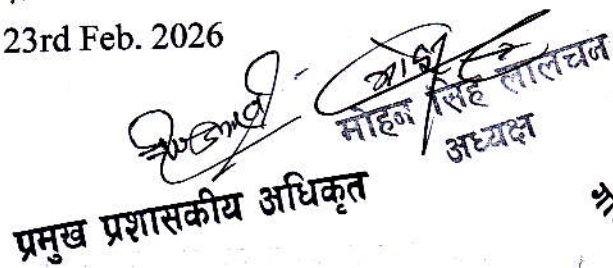 23rd Feb. 2026
मोहन सिंह लालचन
अध्यक्ष
प्रमुख प्रशासकीय अधिकृत